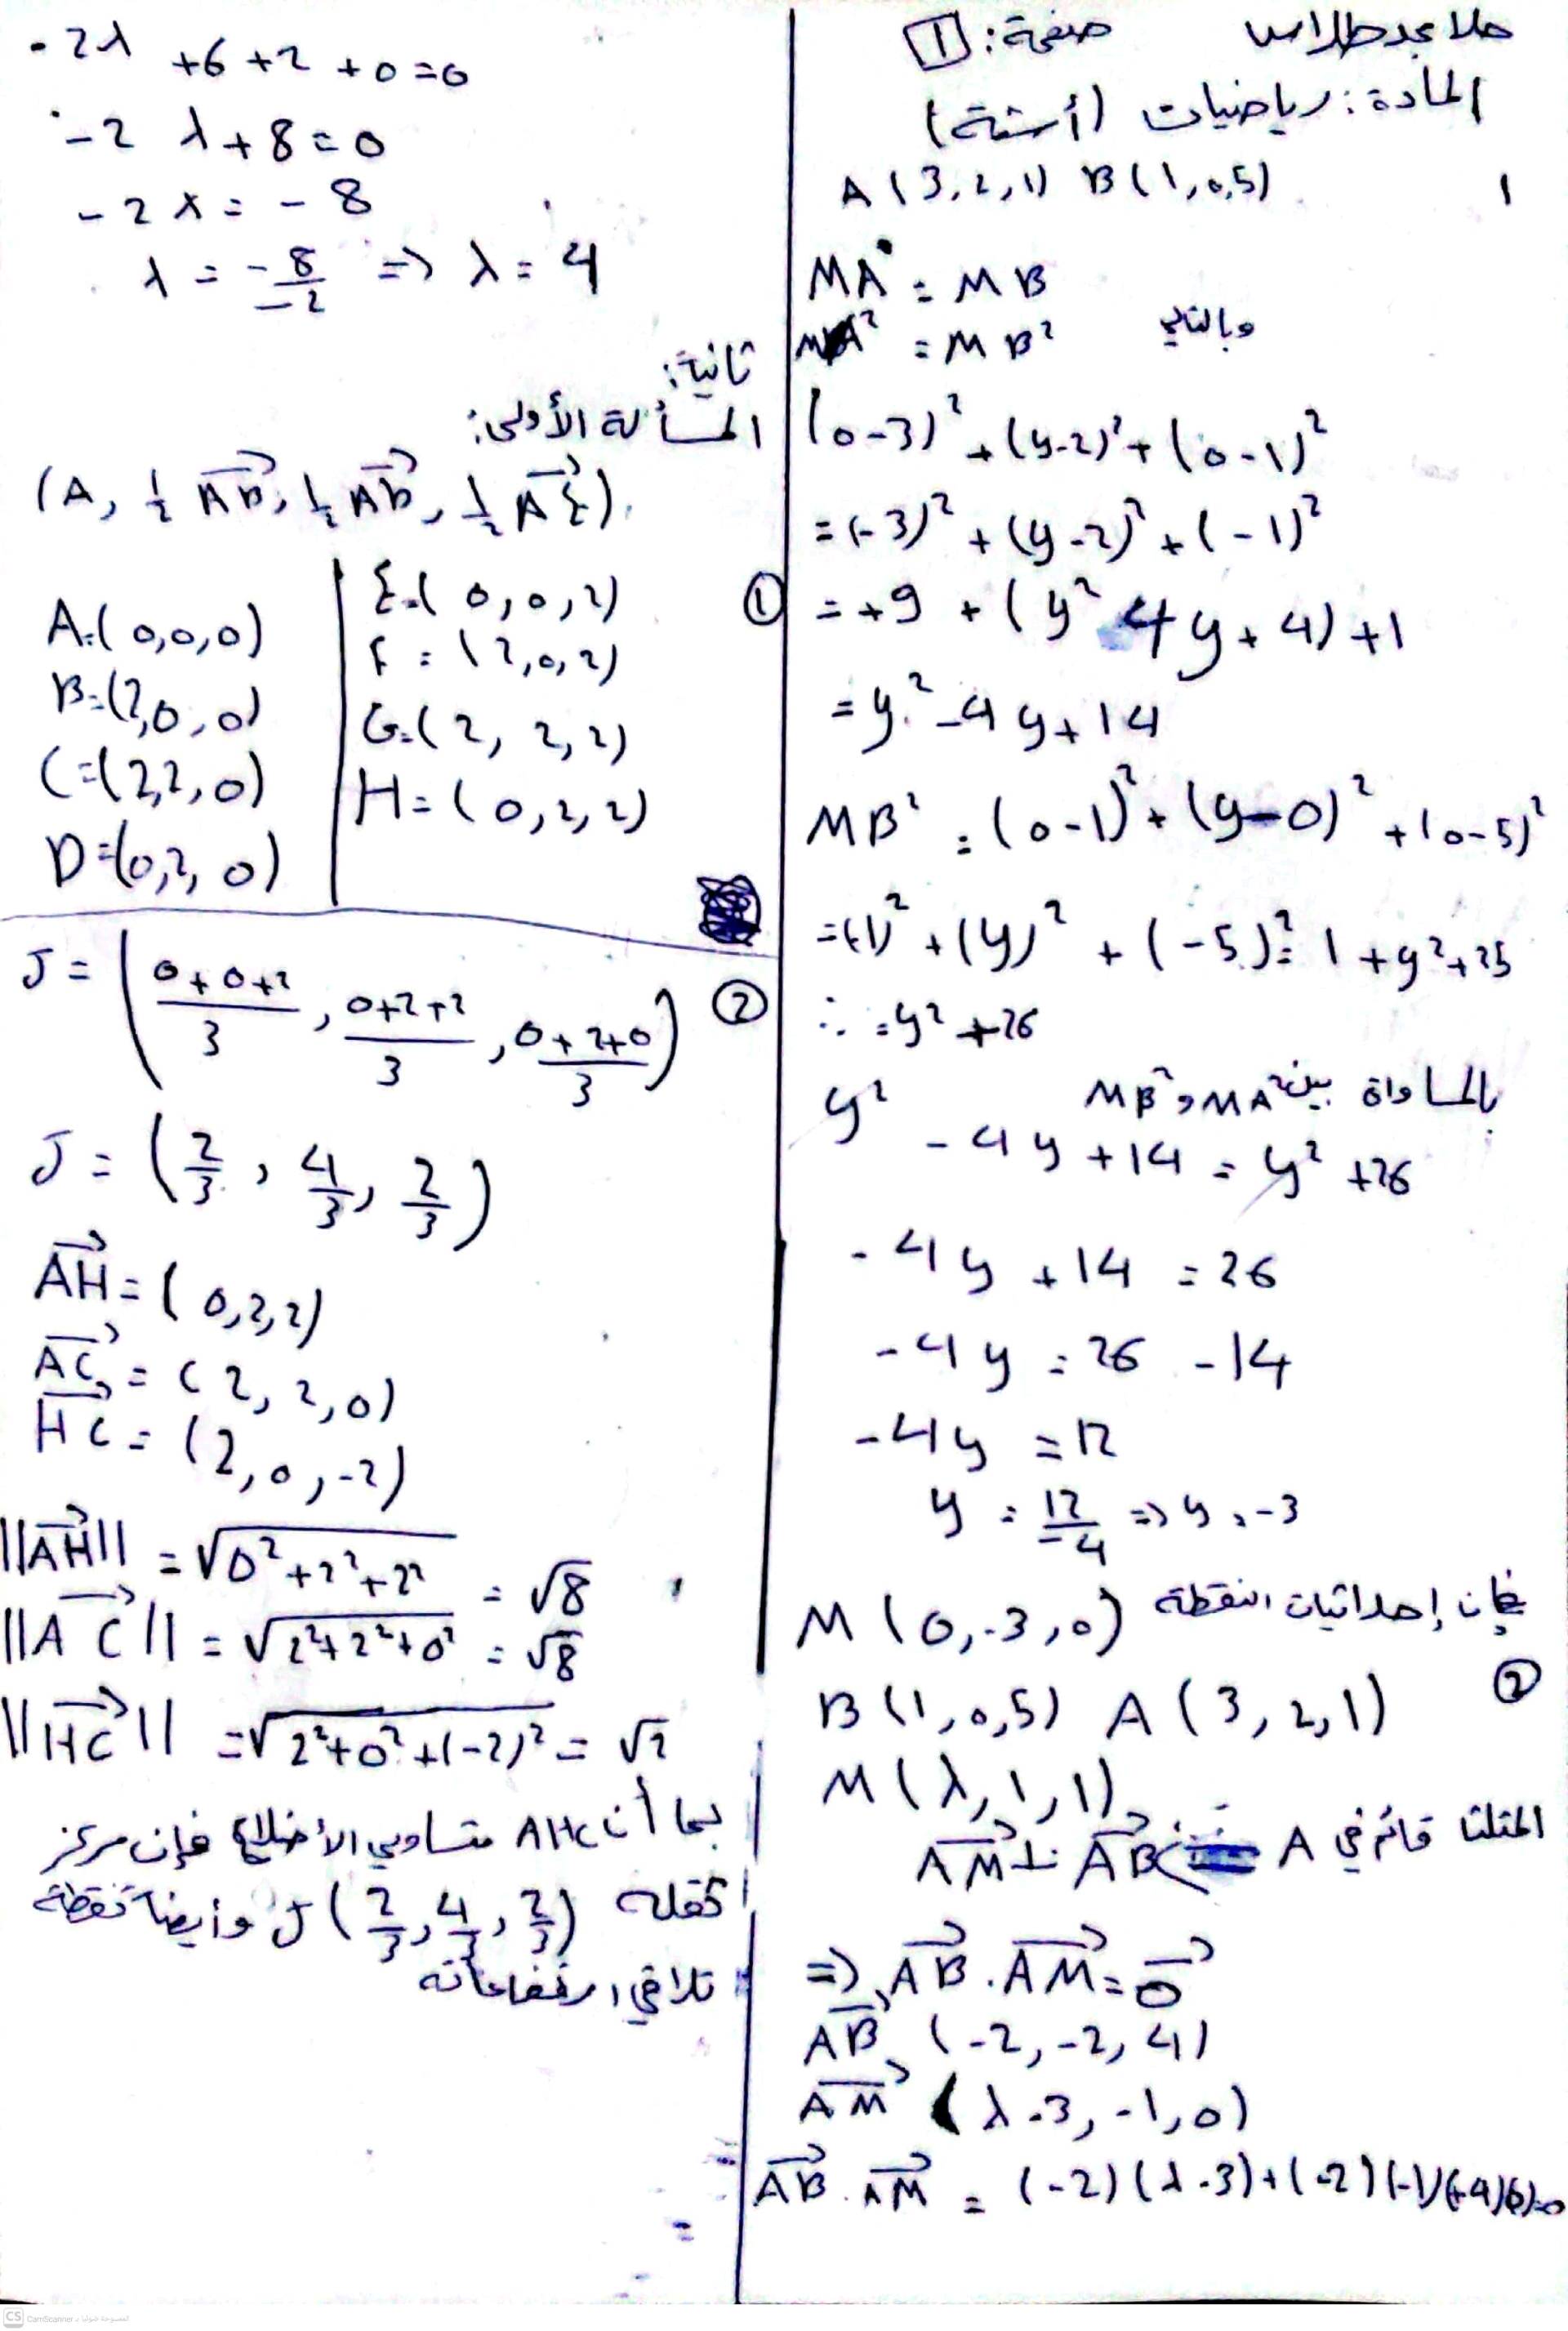 صفحة: 1
المادة: رياضيات (أتمتة)
1 A(3,2,1) B(1,0,5)
MA = MB
وبالتالي MA² = MB²
(0-3)² + (y-2)² + (0-1)²
= (-3)² + (y-2)² + (-1)²
= +9 + (y² 4y + 4) + 1
= y² - 4y + 14
MB² = (0-1)² + (y-0)² + (0-5)²
= (-1)² + (y)² + (-5)² = 1 + y² + 25
∴ = y² + 26
بالمساواة بين MA² و MB²
y² - 4y + 14 = y² + 26
- 4y + 14 = 26
- 4y = 26 - 14
- 4y = 12
y = 12/-4 => y = -3
فإن إحداثيات النقطة M(0,-3,0)
② B(1,0,5) A(3,2,1)
M(λ,1,1)
المثلث قائم في A AM ⊥ AB
=> AB . AM = 0
AB (-2,-2,4)
AM (λ-3,-1,0)
AB . AM = (-2)(λ-3)+(-2)(-1)(+4)(0)=0
-2λ +6 +2 +0 = 0
-2λ + 8 = 0
-2λ = -8
λ = -8/-2 => λ = 4
ثانياً:
المسألة الأولى:
(A, 1/2 AB, 1/2 AD, 1/2 AE)
①
A=(0,0,0)
B=(2,0,0)
C=(2,2,0)
D=(0,2,0)
E=(0,0,2)
F=(2,0,2)
G=(2,2,2)
H=(0,2,2)
② J = ((0+0+2)/3, (0+2+2)/3, (0+2+0)/3)
J = (2/3, 4/3, 2/3)
AH = (0,2,2)
AC = (2,2,0)
HC = (2,0,-2)
||AH|| = √(0²+2²+2²) = √8
||AC|| = √(2²+2²+0²) = √8
||HC|| = √(2²+0²+(-2)²) = √2
بما أن AHC متساوي الأضلاع فإن مركز
ثقله J(2/3, 4/3, 2/3) وأيضاً نقطة
تلاقي ارتفاعاته
CS CamScanner الممسوحة ضوئيا بـ